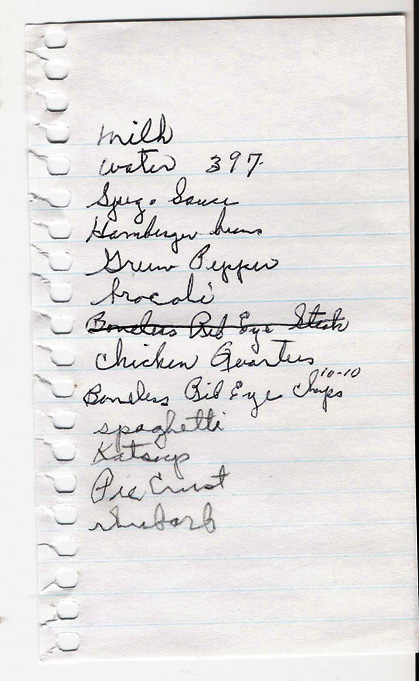 milk
water 397.
Spag. Sauce
Hamberger buns
Green Pepper
brocoli
Boneless Rib Eye Steak
Chicken Quarters
10-10
Boneless Rib Eye Chops
spaghetti
Katsup
Pie Crust
rhubarb